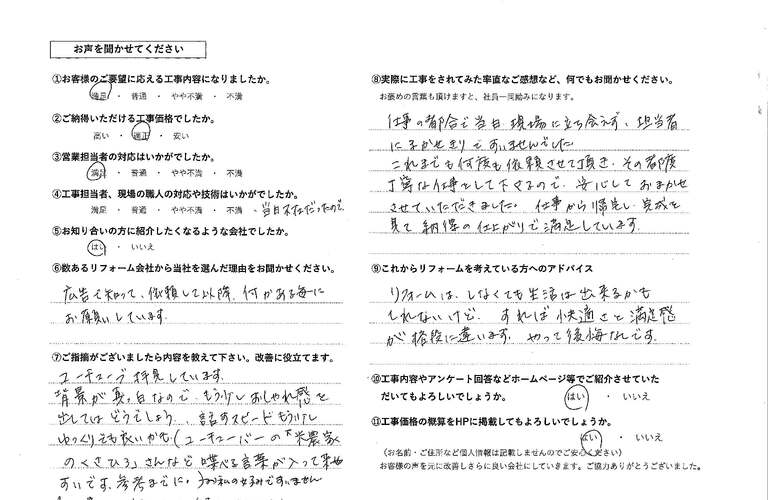 お声を聞かせてください
①お客様のご要望に応える工事内容になりましたか。
満足 ・ 普通 ・ やや不満 ・ 不満
②ご納得いただける工事価格でしたか。
高い ・ 適正 ・ 安い
③営業担当者の対応はいかがでしたか。
満足 ・ 普通 ・ やや不満 ・ 不満
④工事担当者、現場の職人の対応や技術はいかがでしたか。
満足 ・ 普通 ・ やや不満 ・ 不満 、当日不在だったので
⑤お知り合いの方に紹介したくなるような会社でしたか。
はい ・ いいえ
⑥数あるリフォーム会社から当社を選んだ理由をお聞かせください。
広告で知って、依頼して以降、何かある毎に
お願いしています。
⑦ご指摘がございましたら内容を教えて下さい。改善に役立てます。
ユーチューブ拝見しています。
背景が真っ白なので、もう少しおしゃれ感を
出してはどうでしょう、、話すスピードもう少し
ゆっくりでも良いかも(ユーチューバーの"米農家
のくさひろ"さんなど喋べる言葉が入って来や
すいです、参考までに。
⑧実際に工事をされてみた率直なご感想など、何でもお聞かせください。
お褒めの言葉も頂けますと、社員一同励みになります。
仕事の都合で当日現場に立ち会えず、担当者
にまかせきりですいませんでした
これまでも何度も依頼させて頂き、その都度
丁寧な仕事をして下さるので、安心しておまかせ
させていただきました。仕事から帰宅し、完成を
見て納得の仕上がりで満足しています。
⑨これからリフォームを考えている方へのアドバイス
リフォームは、しなくても生活は出来るかも
しれないけど、すれば快適さと満足感
が格段に違います。やって後悔なしです。
⑩工事内容やアンケート回答などホームページ等でご紹介させていた
だいてもよろしいでしょうか。 はい ・ いいえ
⑪工事価格の概算をHPに掲載してもよろしいでしょうか。
はい ・ いいえ
(お名前・ご住所など個人情報は記載しませんのでご安心ください)
お客様の声を元に改善しさらに良い会社にしていきます。ご協力ありがとうございました。